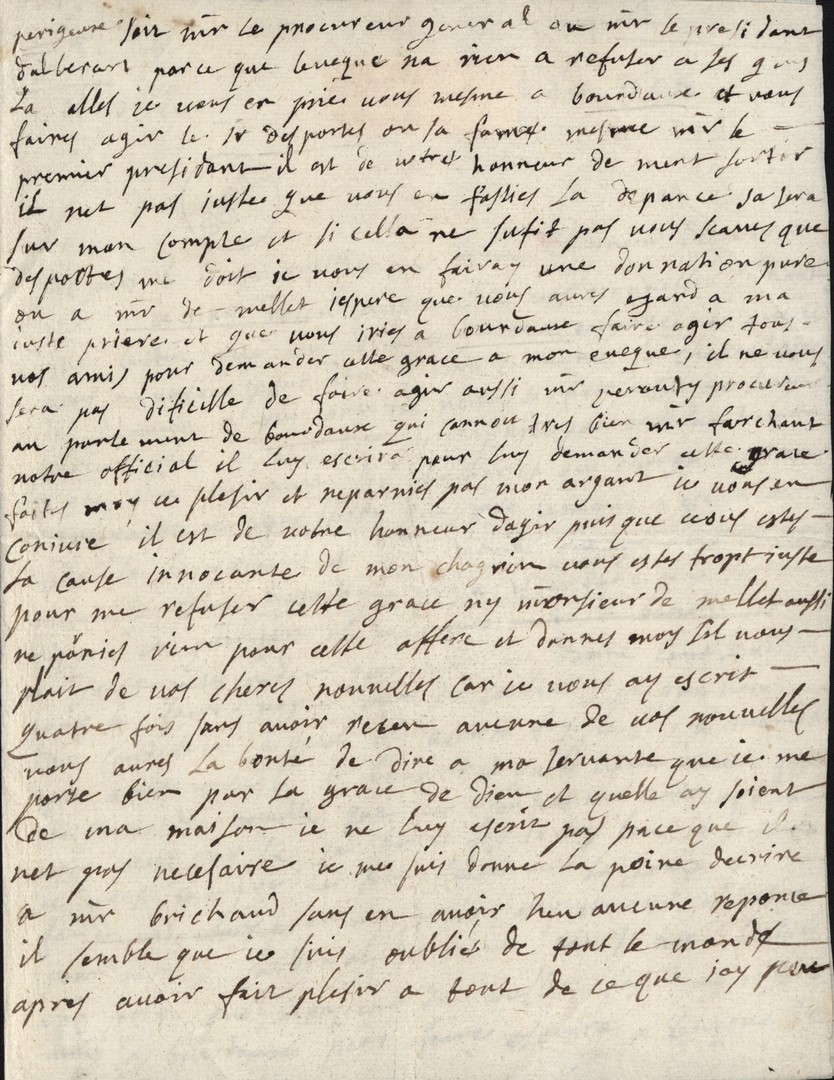 perigeuse soit mr le procureur general ou mr le presidant
dalberart parce que leveque na rien a refuser a ses gens
La alles ie vous en prie vous mesme a bourdaux et vous
faires agir le sr desportes ou sa fame mesme mr le
premier presidant il est de votre honneur de ment sortir
il net pas iuste que vous en fassies la depance sa sera
sur mon compte et si cella ne sufit pas vous scaves que
desportes me doit ie vous en fairay une donnation pure
ou a mr de mellet iespere que vous aures egard a ma
iuste priere et que vous iries a bourdaux faire agir tous
vos amis pour demander cette grace a mon eveque, il ne vous
sera pas dificille de faire agir aussi mr procureur
au parlement de bourdaux qui connoi tres bien mr farchaut
notre official il luy escrira pour luy demander cette grace
faites moy ce plesir et neparnies pas mon argant ie vous en
coniure il est de votre honneur dagir puis que vous estes
la cause innocante de mon chagrin vous estes tropt iuste
pour me refuser cette grace ny monsieur de mellet aussi
ne panies rien pour cette affere et donnes moy sil vous
plait de vos cheres nouvelles car ie vous ay escrit
quatre fois sans avoir receu aucune de vos nouvelles
vous aures la bonté de dire a ma servante que ie me
porte bien par la grace de dieu et quelle ay soient
de ma maison ie ne luy escrit pas pace que il
net pas necesaire ie me suis donne la poine decrire
a mr brichaud sans en avoir heu aucune reponce
il semble que ie suis oublié de tout le monde
apres avoir fait plesir a tout de ce que iay peu